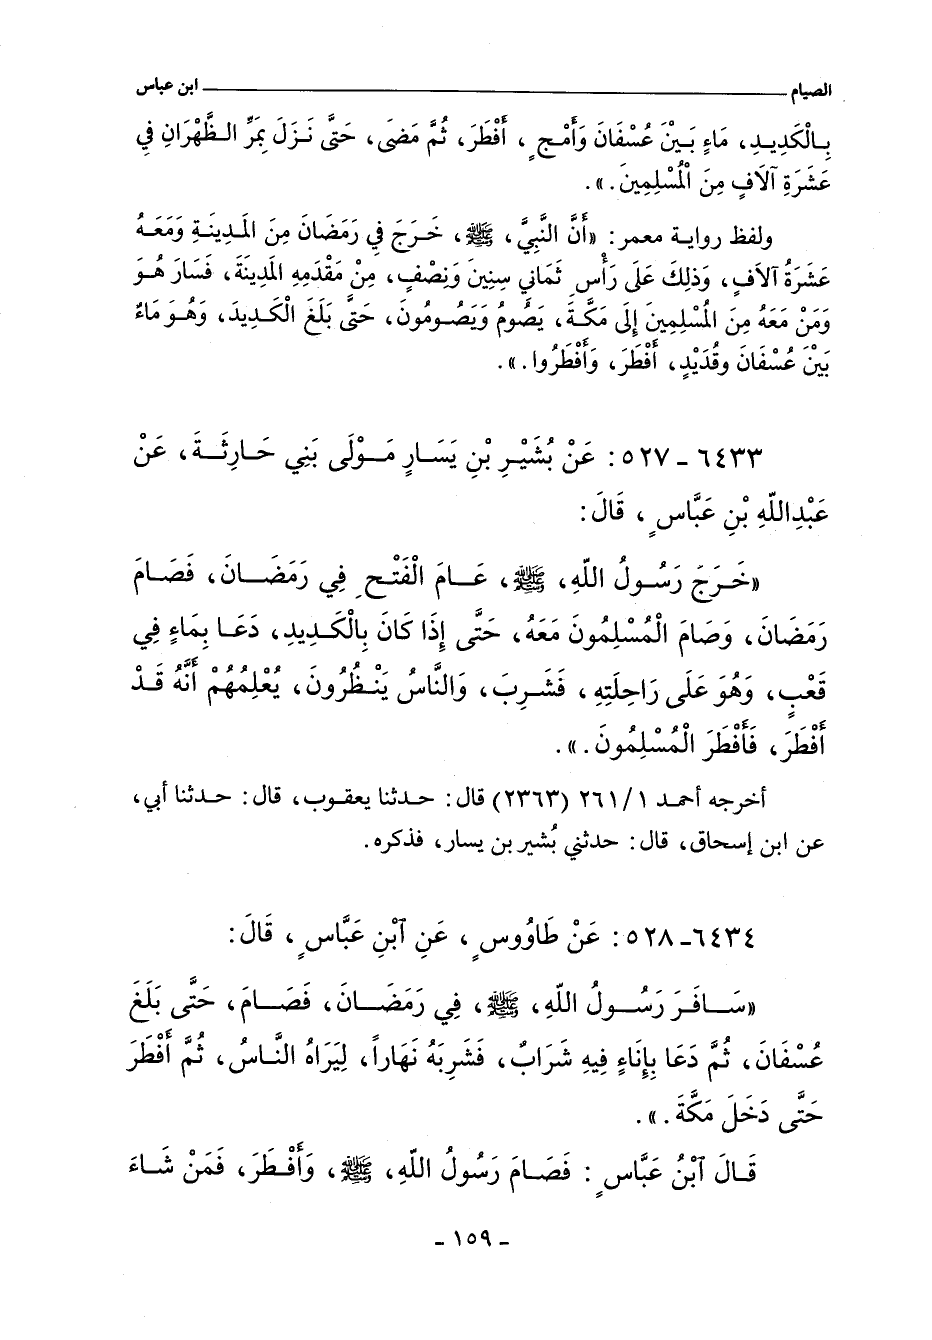 الصيام ــــــــــــــــــــــــــــــــــــــــ ابن عباس
بِالْكَدِيدِ، مَاءٍ بَيْنَ عُسْفَانَ وَأَمْجٍ، أَفْطَرَ، ثُمَّ مَضَى، حَتَّى نَزَلَ بِمَرِّ الظَّهْرَانِ فِي
عَشَرَةِ آلَافٍ مِنَ الْمُسْلِمِينَ.».
ولفظ رواية معمر: «أَنَّ النَّبِيَّ، ﷺ، خَرَجَ فِي رَمَضَانَ مِنَ الْمَدِينَةِ وَمَعَهُ
عَشَرَةُ آلَافٍ، وَذٰلِكَ عَلَى رَأْسِ ثَمَانِي سِنِينَ وَنِصْفٍ، مِنْ مَقْدَمِهِ الْمَدِينَةَ، فَسَارَ هُوَ
وَمَنْ مَعَهُ مِنَ الْمُسْلِمِينَ إِلَى مَكَّةَ، يَصُومُ وَيَصُومُونَ، حَتَّى بَلَغَ الْكَدِيدَ، وَهُوَ مَاءٌ
بَيْنَ عُسْفَانَ وقُدَيْدٍ، أَفْطَرَ، وَأَفْطَرُوا.».
٦٤٣٣ ـ ٥٢٧: عَنْ بُشَيْرِ بْنِ يَسَارٍ مَوْلَى بَنِي حَارِثَةَ، عَنْ
عَبْدِاللّهِ بْنِ عَبَّاسٍ، قَالَ:
«خَرَجَ رَسُولُ اللّهِ، ﷺ، عَامَ الْفَتْحِ فِي رَمَضَانَ، فَصَامَ
رَمَضَانَ، وَصَامَ الْمُسْلِمُونَ مَعَهُ، حَتَّى إِذَا كَانَ بِالْكَدِيدِ، دَعَا بِمَاءٍ فِي
قَعْبٍ، وَهُوَ عَلَى رَاحِلَتِهِ، فَشَرِبَ، وَالنَّاسُ يَنْظُرُونَ، يُعْلِمُهُمْ أَنَّهُ قَدْ
أَفْطَرَ، فَأَفْطَرَ الْمُسْلِمُونَ.».
أخرجه أحمد ٢٦١/١ (٢٣٦٣) قال: حدثنا يعقوب، قال: حدثنا أبي،
عن ابن إسحاق، قال: حدثني بُشير بن يسار، فذكره.
٦٤٣٤ـ ٥٢٨: عَنْ طَاوُوسٍ، عَنِ ٱبْنِ عَبَّاسٍ، قَالَ:
«سَافَرَ رَسُولُ اللّهِ، ﷺ، فِي رَمَضَانَ، فَصَامَ، حَتَّى بَلَغَ
عُسْفَانَ، ثُمَّ دَعَا بِإِنَاءٍ فِيهِ شَرَابٌ، فَشَرِبَهُ نَهَاراً، لِيَرَاهُ النَّاسُ، ثُمَّ أَفْطَرَ
حَتَّى دَخَلَ مَكَّةَ.».
قَالَ ٱبْنُ عَبَّاسٍ: فَصَامَ رَسُولُ اللّهِ، ﷺ، وَأَفْطَرَ، فَمَنْ شَاءَ
ـ ١٥٩ ـ